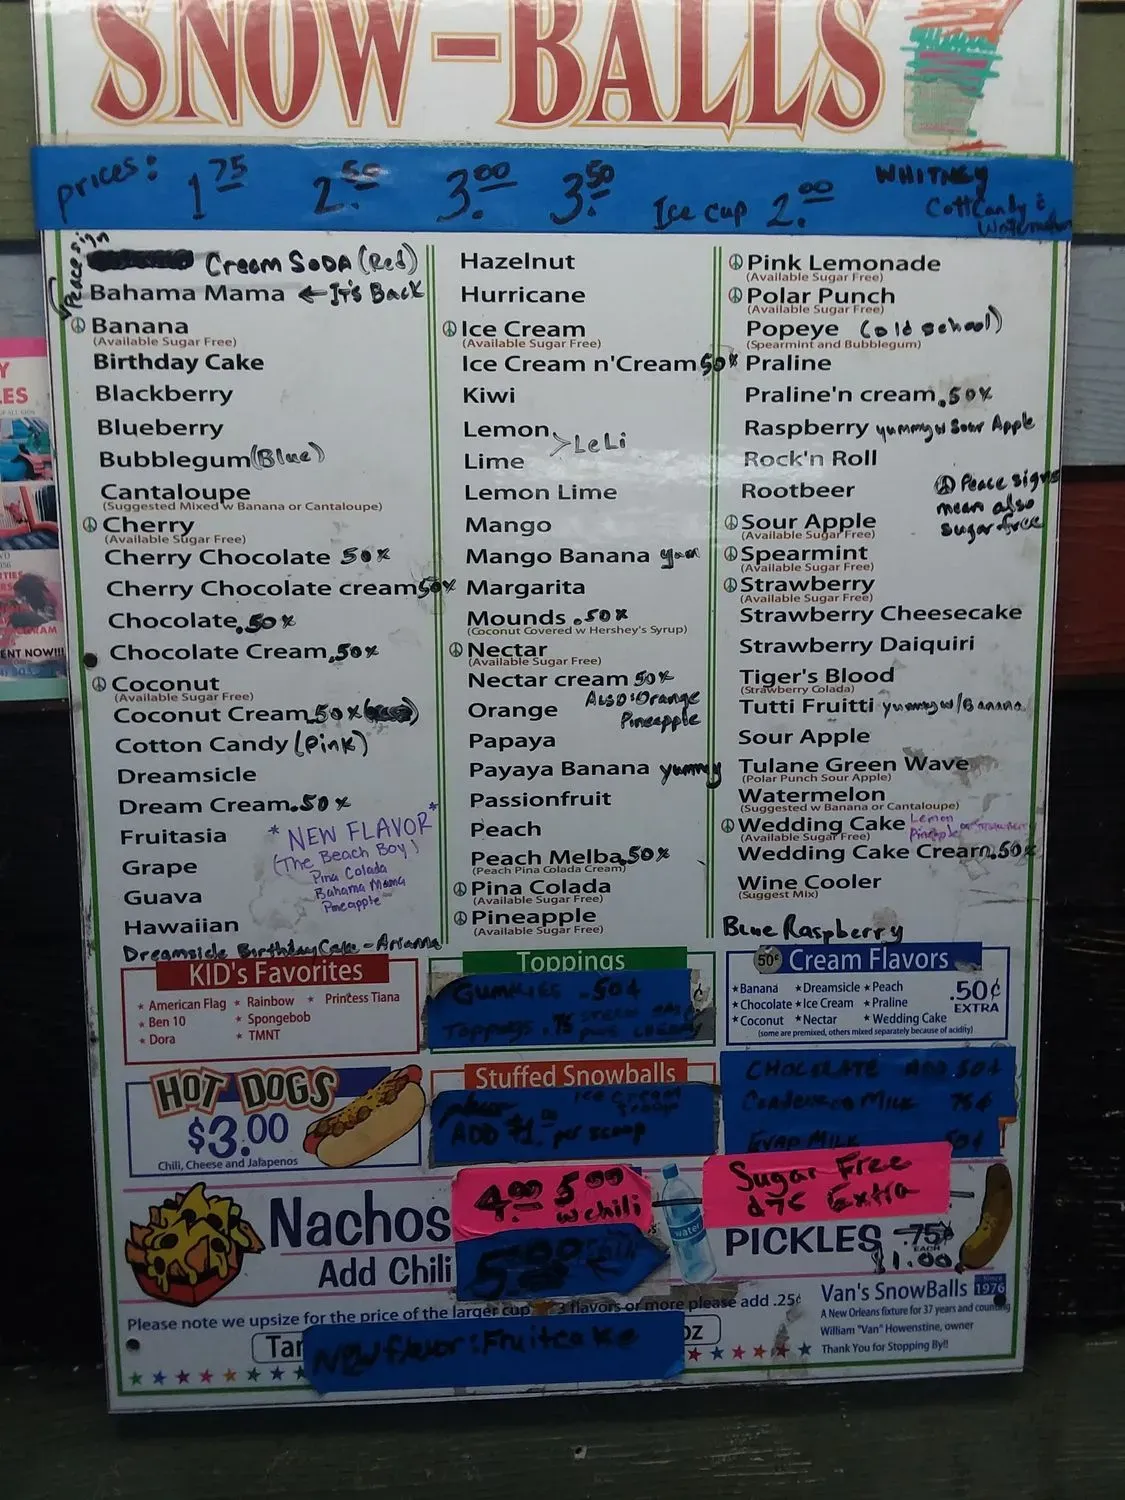 SNOW-BALLS
prices: 1.75 2.50 3.00 3.50 Ice cup 2.00
WHITNEY
CottCandy &
Watermelon
Peace sign
Cream SODA (Red)
Bahama Mama ← It's Back
Banana
(Available Sugar Free)
Birthday Cake
Blackberry
Blueberry
Bubblegum (Blue)
Cantaloupe
(Suggested Mixed w Banana or Cantaloupe)
Cherry
(Available Sugar Free)
Cherry Chocolate .50x
Cherry Chocolate cream 50x
Chocolate .50x
Chocolate Cream .50x
Coconut
(Available Sugar Free)
Coconut Cream .50x
Cotton Candy (Pink)
Dreamsicle
Dream Cream .50x
Fruitasia
Grape
Guava
Hawaiian
*NEW FLAVOR*
(The Beach Boy)
Pina Colada
Bahama Mama
Pineapple
Dreamsicle Birthday Cake - Arianna
Hazelnut
Hurricane
Ice Cream
(Available Sugar Free)
Ice Cream n'Cream 50x
Kiwi
Lemon
Lime
>LeLi
Lemon Lime
Mango
Mango Banana yum
Margarita
Mounds .50x
(Coconut Covered w Hershey's Syrup)
Nectar
(Available Sugar Free)
Nectar cream 50x
Orange
Also: Orange
Pineapple
Papaya
Payaya Banana yummy
Passionfruit
Peach
Peach Melba .50x
(Peach Pina Colada Cream)
Pina Colada
(Available Sugar Free)
Pineapple
(Available Sugar Free)
Pink Lemonade
(Available Sugar Free)
Polar Punch
(Available Sugar Free)
Popeye (old school)
(Spearmint and Bubblegum)
Praline
Praline'n cream .50x
Raspberry yummy w Sour Apple
Rock'n Roll
Rootbeer
Peace signs
mean also
sugar free
Sour Apple
(Available Sugar Free)
Spearmint
(Available Sugar Free)
Strawberry
(Available Sugar Free)
Strawberry Cheesecake
Strawberry Daiquiri
Tiger's Blood
(Strawberry Colada)
Tutti Fruitti yummy w/Banana
Sour Apple
Tulane Green Wave
(Polar Punch Sour Apple)
Watermelon
(Suggested w Banana or Cantaloupe)
Wedding Cake
(Available Sugar Free)
Lemon
Pineapple or Strawberry
Wedding Cake Cream .50x
Wine Cooler
(Suggest Mix)
Blue Raspberry
KID's Favorites
★ American Flag ★ Rainbow ★ Princess Tiana
★ Ben 10 ★ Spongebob
★ Dora ★ TMNT
Toppings
GUMMIES .50¢
Toppings .75
50¢ Cream Flavors
★Banana ★Dreamsicle ★Peach
★Chocolate ★Ice Cream ★Praline
★Coconut ★Nectar ★Wedding Cake
.50¢
EXTRA
(some are premixed, others mixed separately because of acidity)
HOT DOGS
$3.00
Chili, Cheese and Jalapenos
Stuffed Snowballs
ice cream
scoop
ADD $1.00 per scoop
CHOCOLATE ADD .50¢
CONDENSED MILK 75¢
EVAP MILK 50¢
Nachos
Add Chili
4.00 5.00
w chili
5.00
water
Sugar Free
.75 Extra
PICKLES .75¢
EACH
$1.00
Please note we upsize for the price of the larger cup 3 flavors or more please add .25¢
Tar
oz
New flavor: Fruitcake
Van's SnowBalls Since 1976
A New Orleans fixture for 37 years and counting
William "Van" Howenstine, owner
Thank You for Stopping By!!
Y
LES
ENT NOW!!!